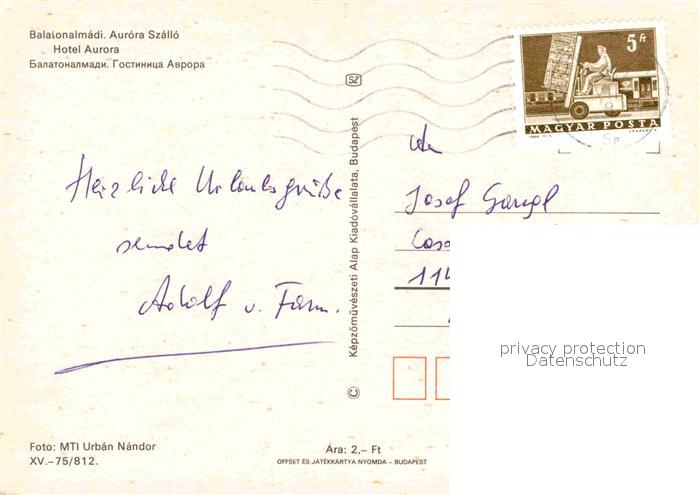 Balatonalmádi. Auróra Szálló
Hotel Aurora
Балатоналмади. Гостиница Аврора
5 Ft
MAGYAR POSTA
SZ
Herzliche Urlaubsgrüße
sendet
Adolf u. Fam.
An
Josef Gangl
114
Képzőművészeti Alap Kiadóvállalata, Budapest
©
privacy protection
Datenschutz
Foto: MTI Urbán Nándor
XV.–75/812.
Ára: 2,– Ft
OFFSET ÉS JÁTÉKKÁRTYA NYOMDA – BUDAPEST